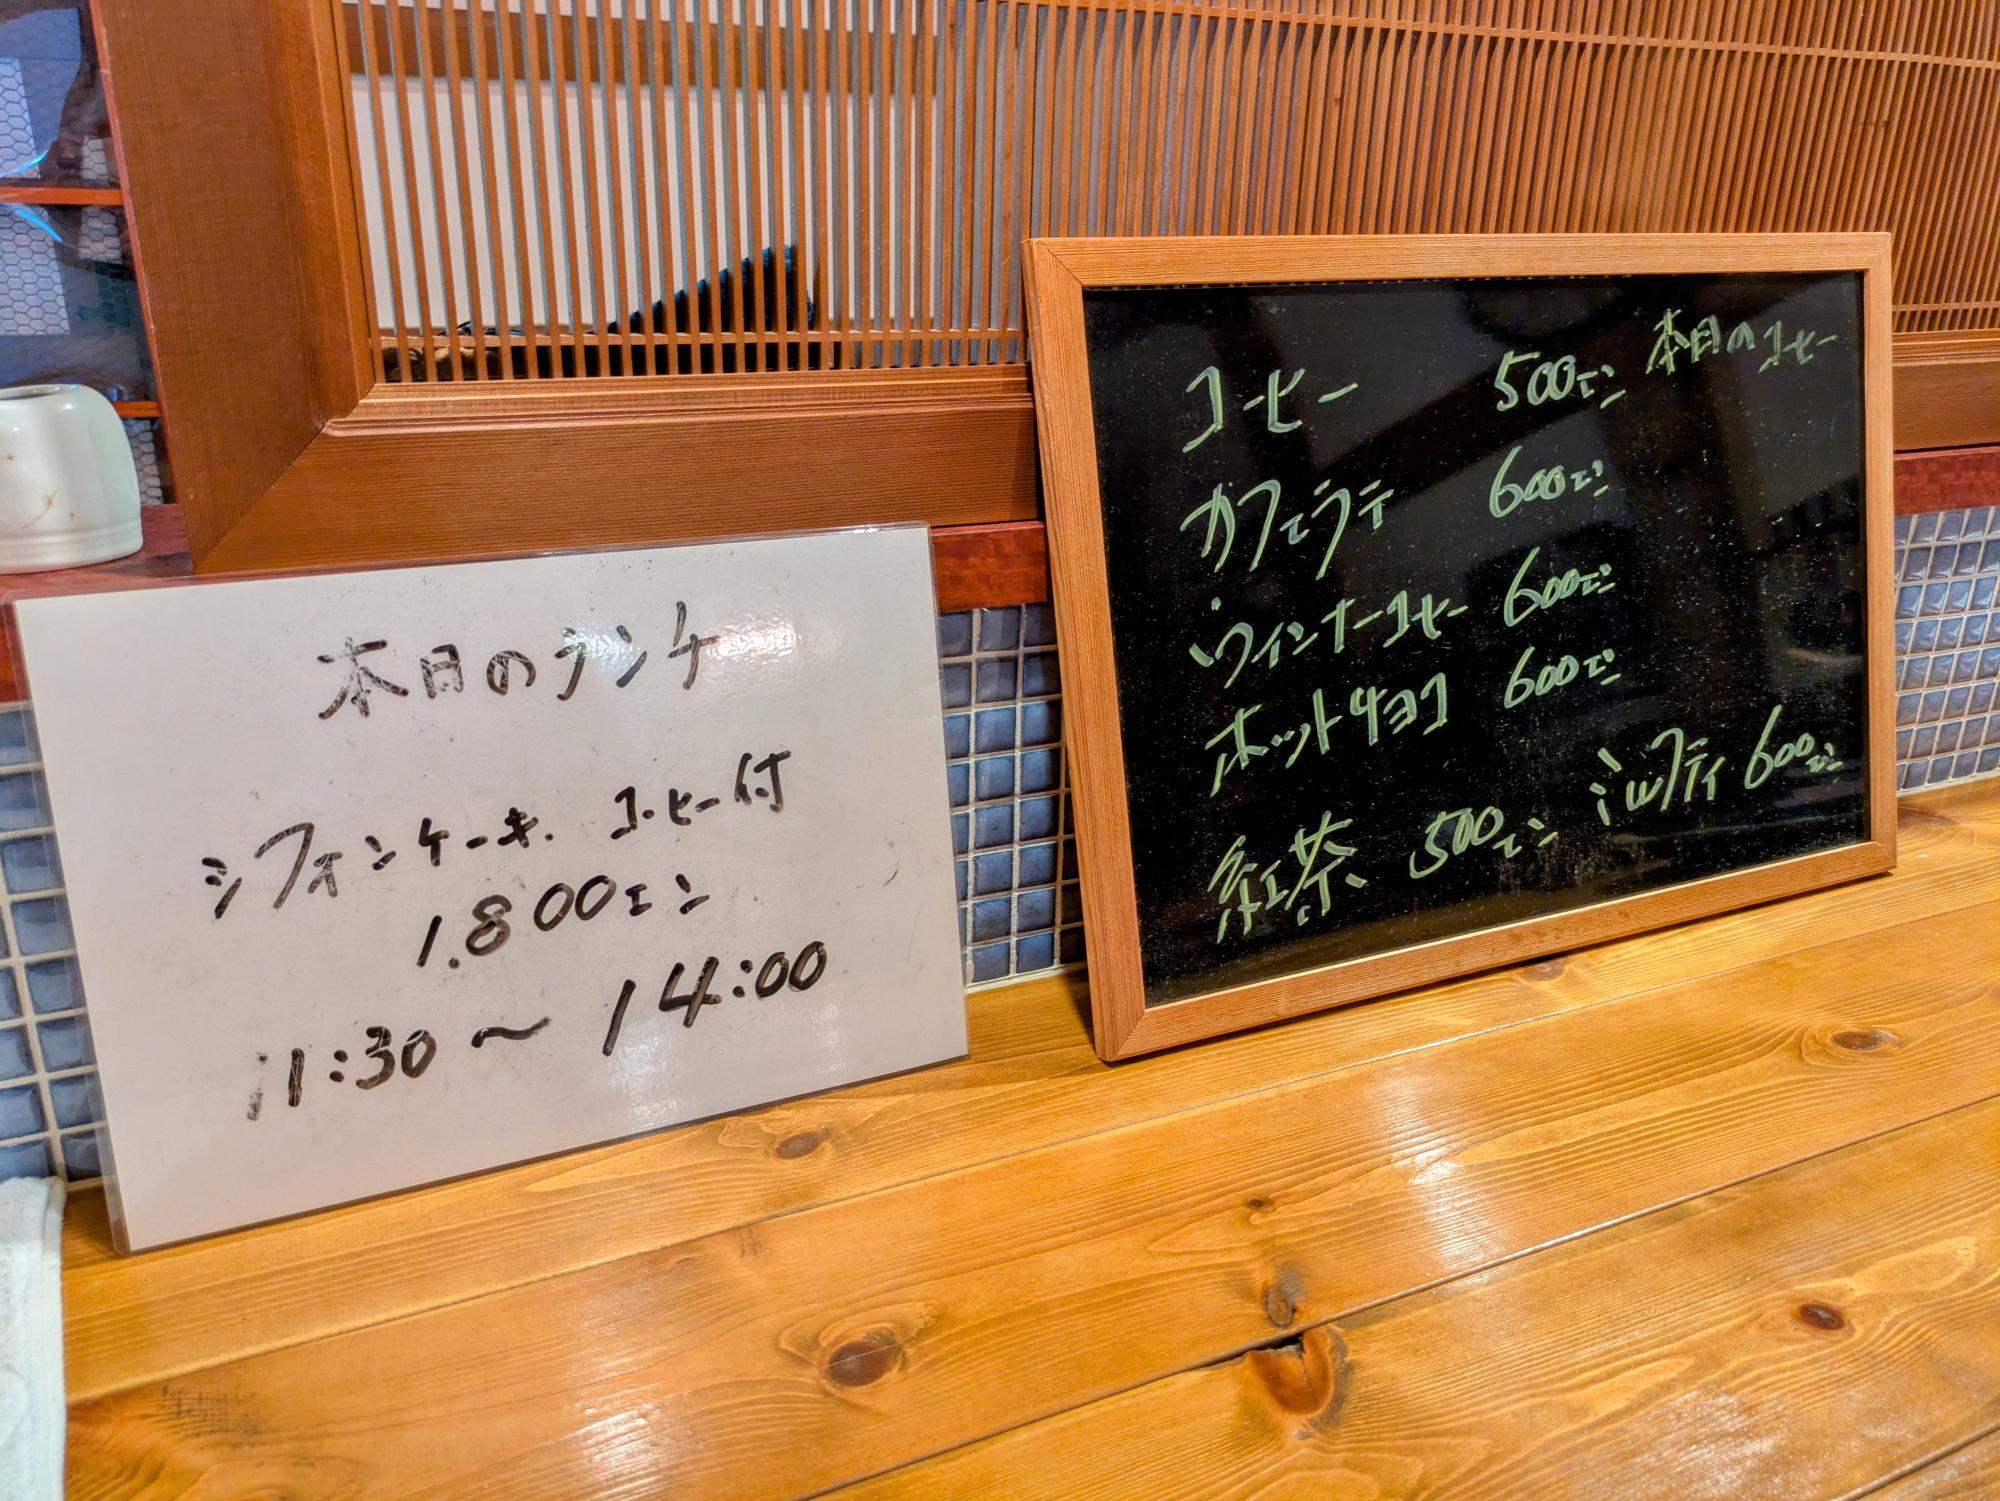 本日のランチ
シフォンケーキ. コーヒー付
1.800エン
11:30〜14:00
コーヒー 500エン 本日のコーヒー
カフェラテ 600エン
ウィンナーコーヒー 600エン
ホットチョコ 600エン
紅茶 500エン ミルクティ 600エン